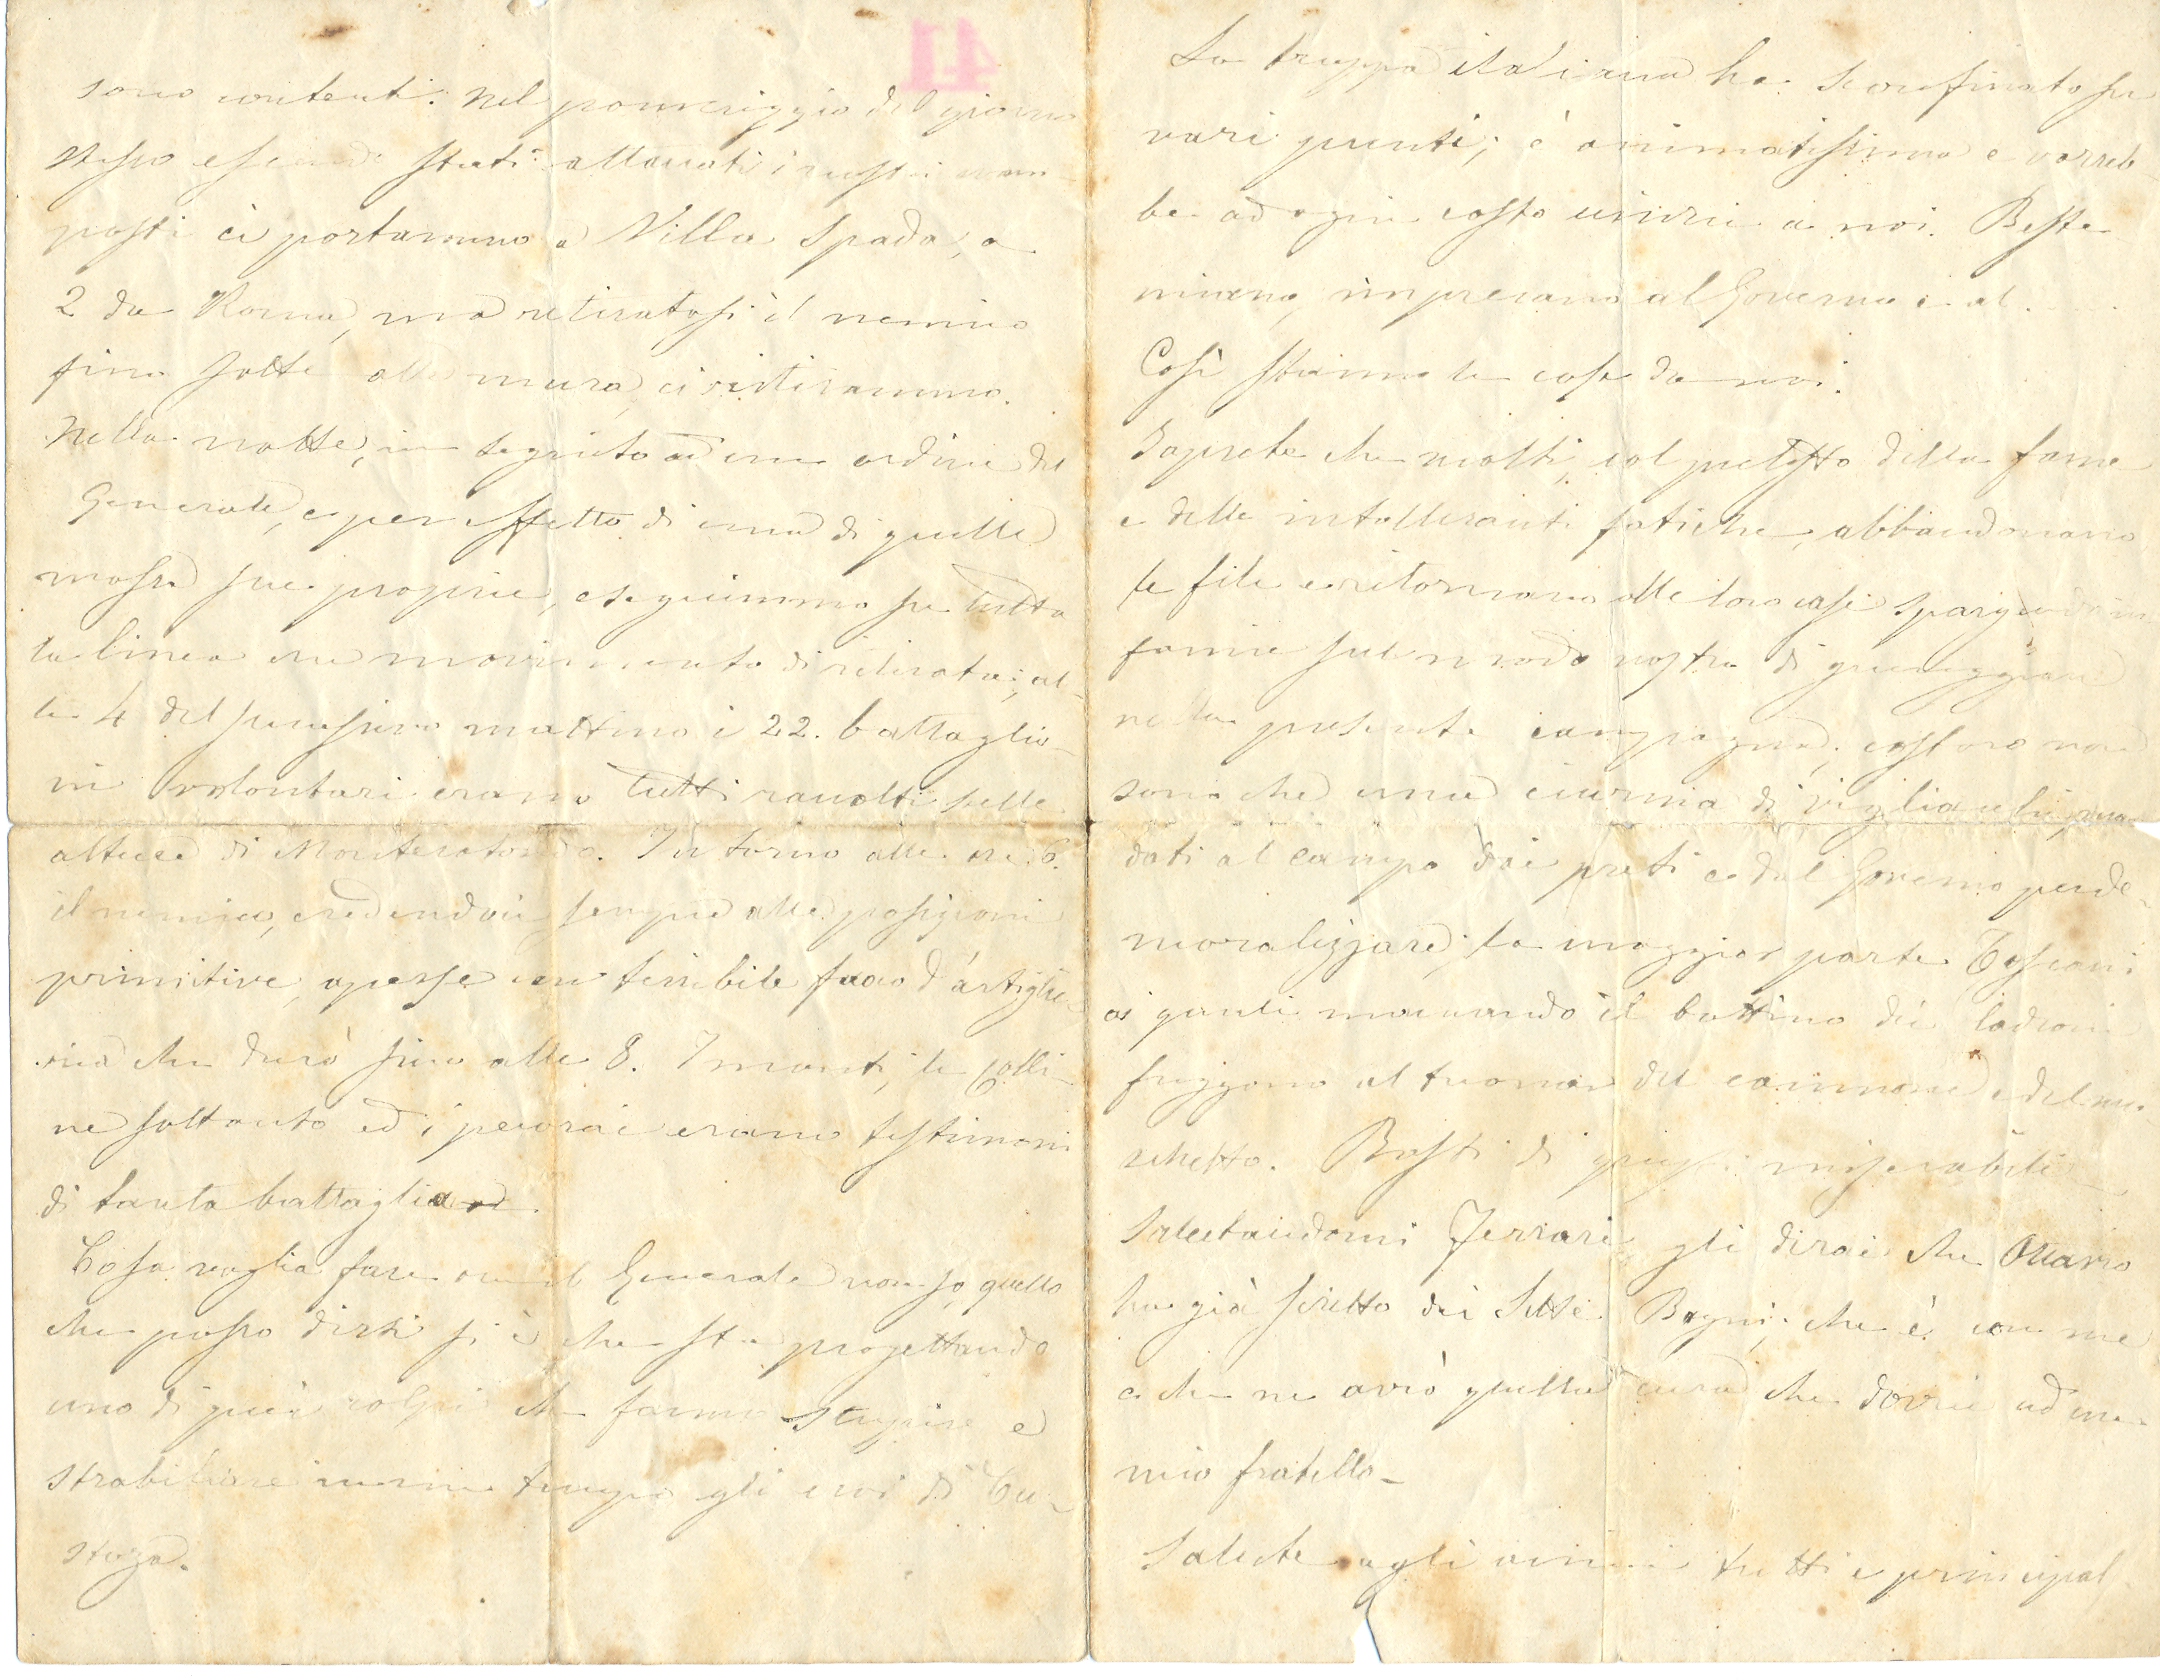 sono contenti. Nel pomeriggio del giorno
stesso essendo stati attaccati i nostri avam
posti ci portammo a Villa Spada, a
2 da Roma, ma ritiratosi il nemico
fino sotto alle mura, ci ritirammo.
Nella notte, in seguito ad un ordine del
Generale, e per effetto di una di quelle
mosse sue proprie, eseguimmo su tutta
la linea un movimento di ritirata; al-
le 4 del successivo mattino i 22. battaglio-
ni volontari erano tutti raccolti sulle
alture di Monterotondo. Intorno alle ore 6.
il nemico, credendoci sempre alle posizioni
primitive, aperse un terribile fuoco d'artiglie-
ria che durò fino alle 8. I monti, le colli-
ne soltanto ed i pecorai erano testimoni
di tanta battaglia.
Cosa voglia fare ora il Generale non so, quello
che posso dirti si è che sta progettando
uno di quei colpi che fanno stupire e
strabiliare in ogni tempo gli eroi di Cu-
stoza.
41
La truppa italiana ha sconfinato su
vari punti; è animatissima e vorreb-
be ad ogni costo unirsi a noi. Beste-
miano, imprecano al Governo e al . . . .
Così stanno le cose da noi.
Saprete che molti, col pretesto della fame
e delle intolleranti fatiche, abbandonano
le file e ritornano alle loro case spargendo in
famie sul modo nostro di guerreggiare
nella presente campagna; costoro non
sono che una ciurmia di vigliacchi, man
dati al campo dai preti e dal Governo per de-
moralizzare; la maggior parte Toscani
ai quali mancando il bottino dei ladroni
fuggono al tuonar del cannone e del mo-
schetto. Basti di questi miserabili.
Salutandomi Ferrari, gli dirai che Ottavio
ha già scritto dai Sette Bagni; che è con me
e che ne avrò quella cura che dovrei ad un
mio fratello_
Salute agli amici tutti e principal-